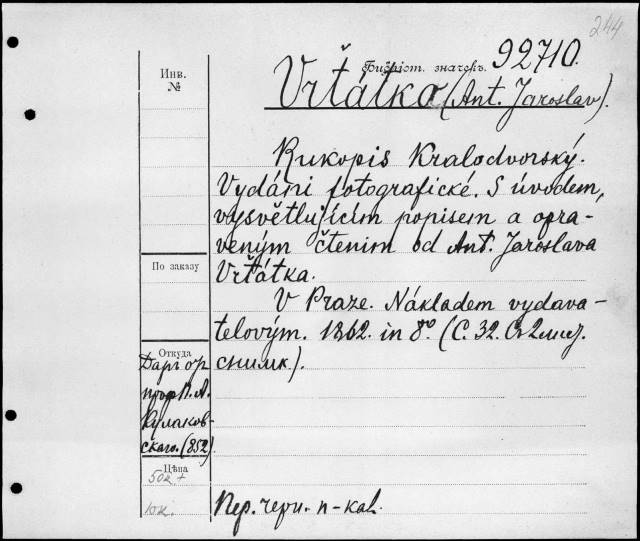 244
Инв.
№
Библіот. значекъ. 92710.
Vrťátko (Ant. Jaroslav).
Rukopis Kralodvorský.
Vydáni fotografické. S úvodem,
vysvětlujícím popisem a opra-
veným čtenim od Ant. Jaroslava
Vrťátka.
V Praze. Nákladem vydava-
telovým. 1862. in 8º (С. 32. Съ
снимк.).
По заказу
Откуда
Даръ
проф. П. А.
Кулаков-
скаго. (852)
Цѣна
50к.+
10к.
Пер. черн. п-кал.